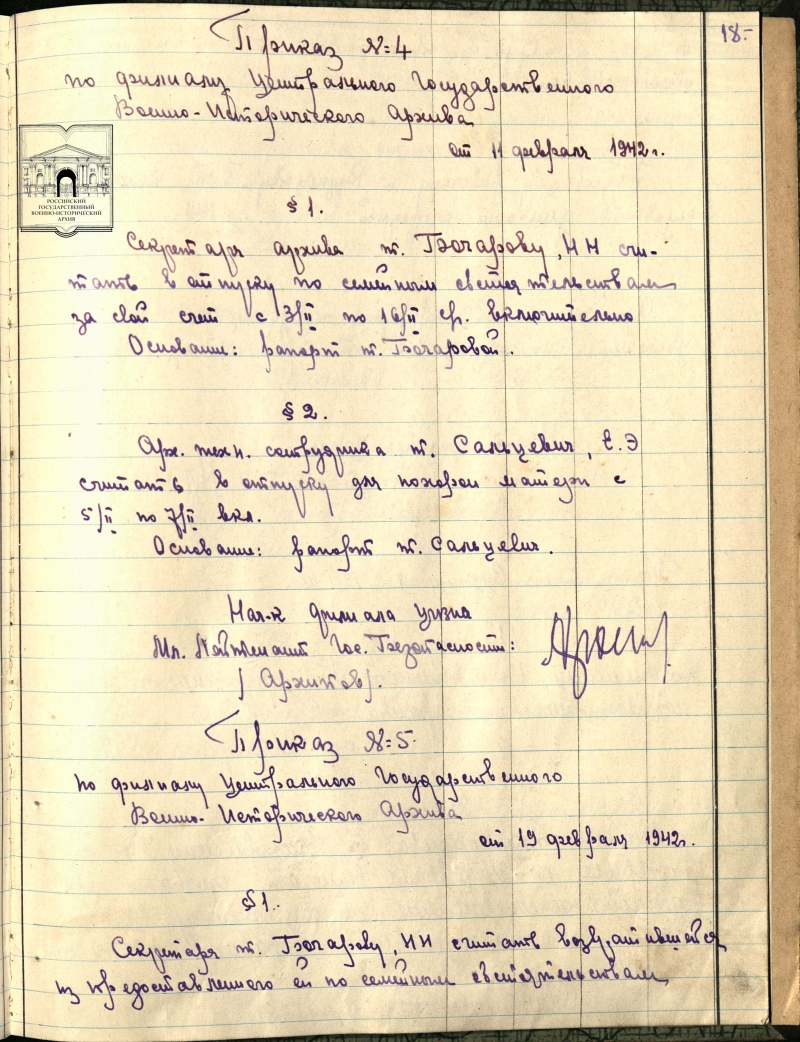 18-
Приказ № 4
по филиалу Центрального Государственного
Военно-Исторического Архива
от 11 февраля 1942 г.
РОССИЙСКИЙ
ГОСУДАРСТВЕННЫЙ
ВОЕННО-ИСТОРИЧЕСКИЙ
АРХИВ
§ 1.
Секретаря архива т. Бочарову, НН счи-
тать в отпуску по семейным обстоятельствам
за свой счет с 3/II по 16/II с/г. включительно
Основание: рапорт т. Бочаровой.
§ 2.
Арх. техн. сотрудника т. Сальцевич, Е.Э
считать в отпуску для похорон матери с
5/II по 7/II вкл.
Основание: рапорт т. Сальцевич.
Нач-к филиала ЦГВИА
Мл. Лейтенант Гос. Безопасности:
/Архипов/.
Приказ № 5
по филиалу Центрального Государственного
Военно-Исторического Архива
от 19 февраля 1942 г.
§ 1.
Секретаря т. Бочарову, НН считать возвратившейся
из предоставленного ей по семейным обстоятельствам